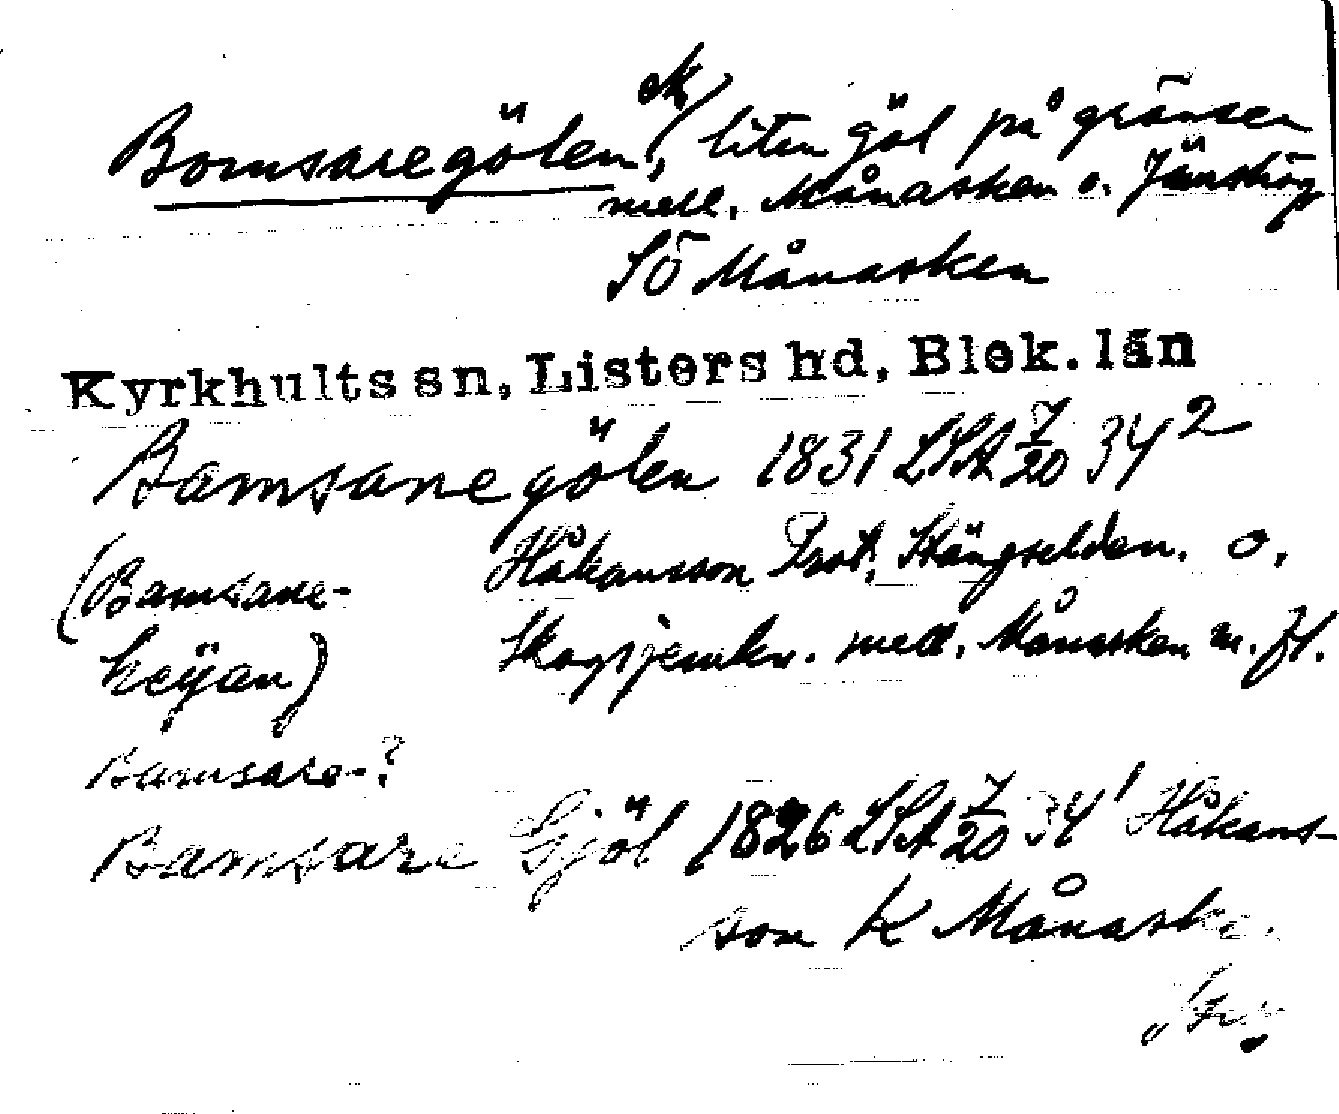 ek
Bomsaregölen, liten göl på gränsen
mell. Månasken o. Jämshög
SÖ Månasken
Kyrkhults sn, Listers hd, Blek. län
Bamsanegölen 1831 LSA 7/20 34²
(Bamsane- Håkansson Prot. Stängselden. o.
heÿan) Skogsjemkn. mell. Månasken m. fl.
Bamsare-?
Bamsare Gjöl 1826 LSA 7/20 34¹ Håkans-
son K Månaske